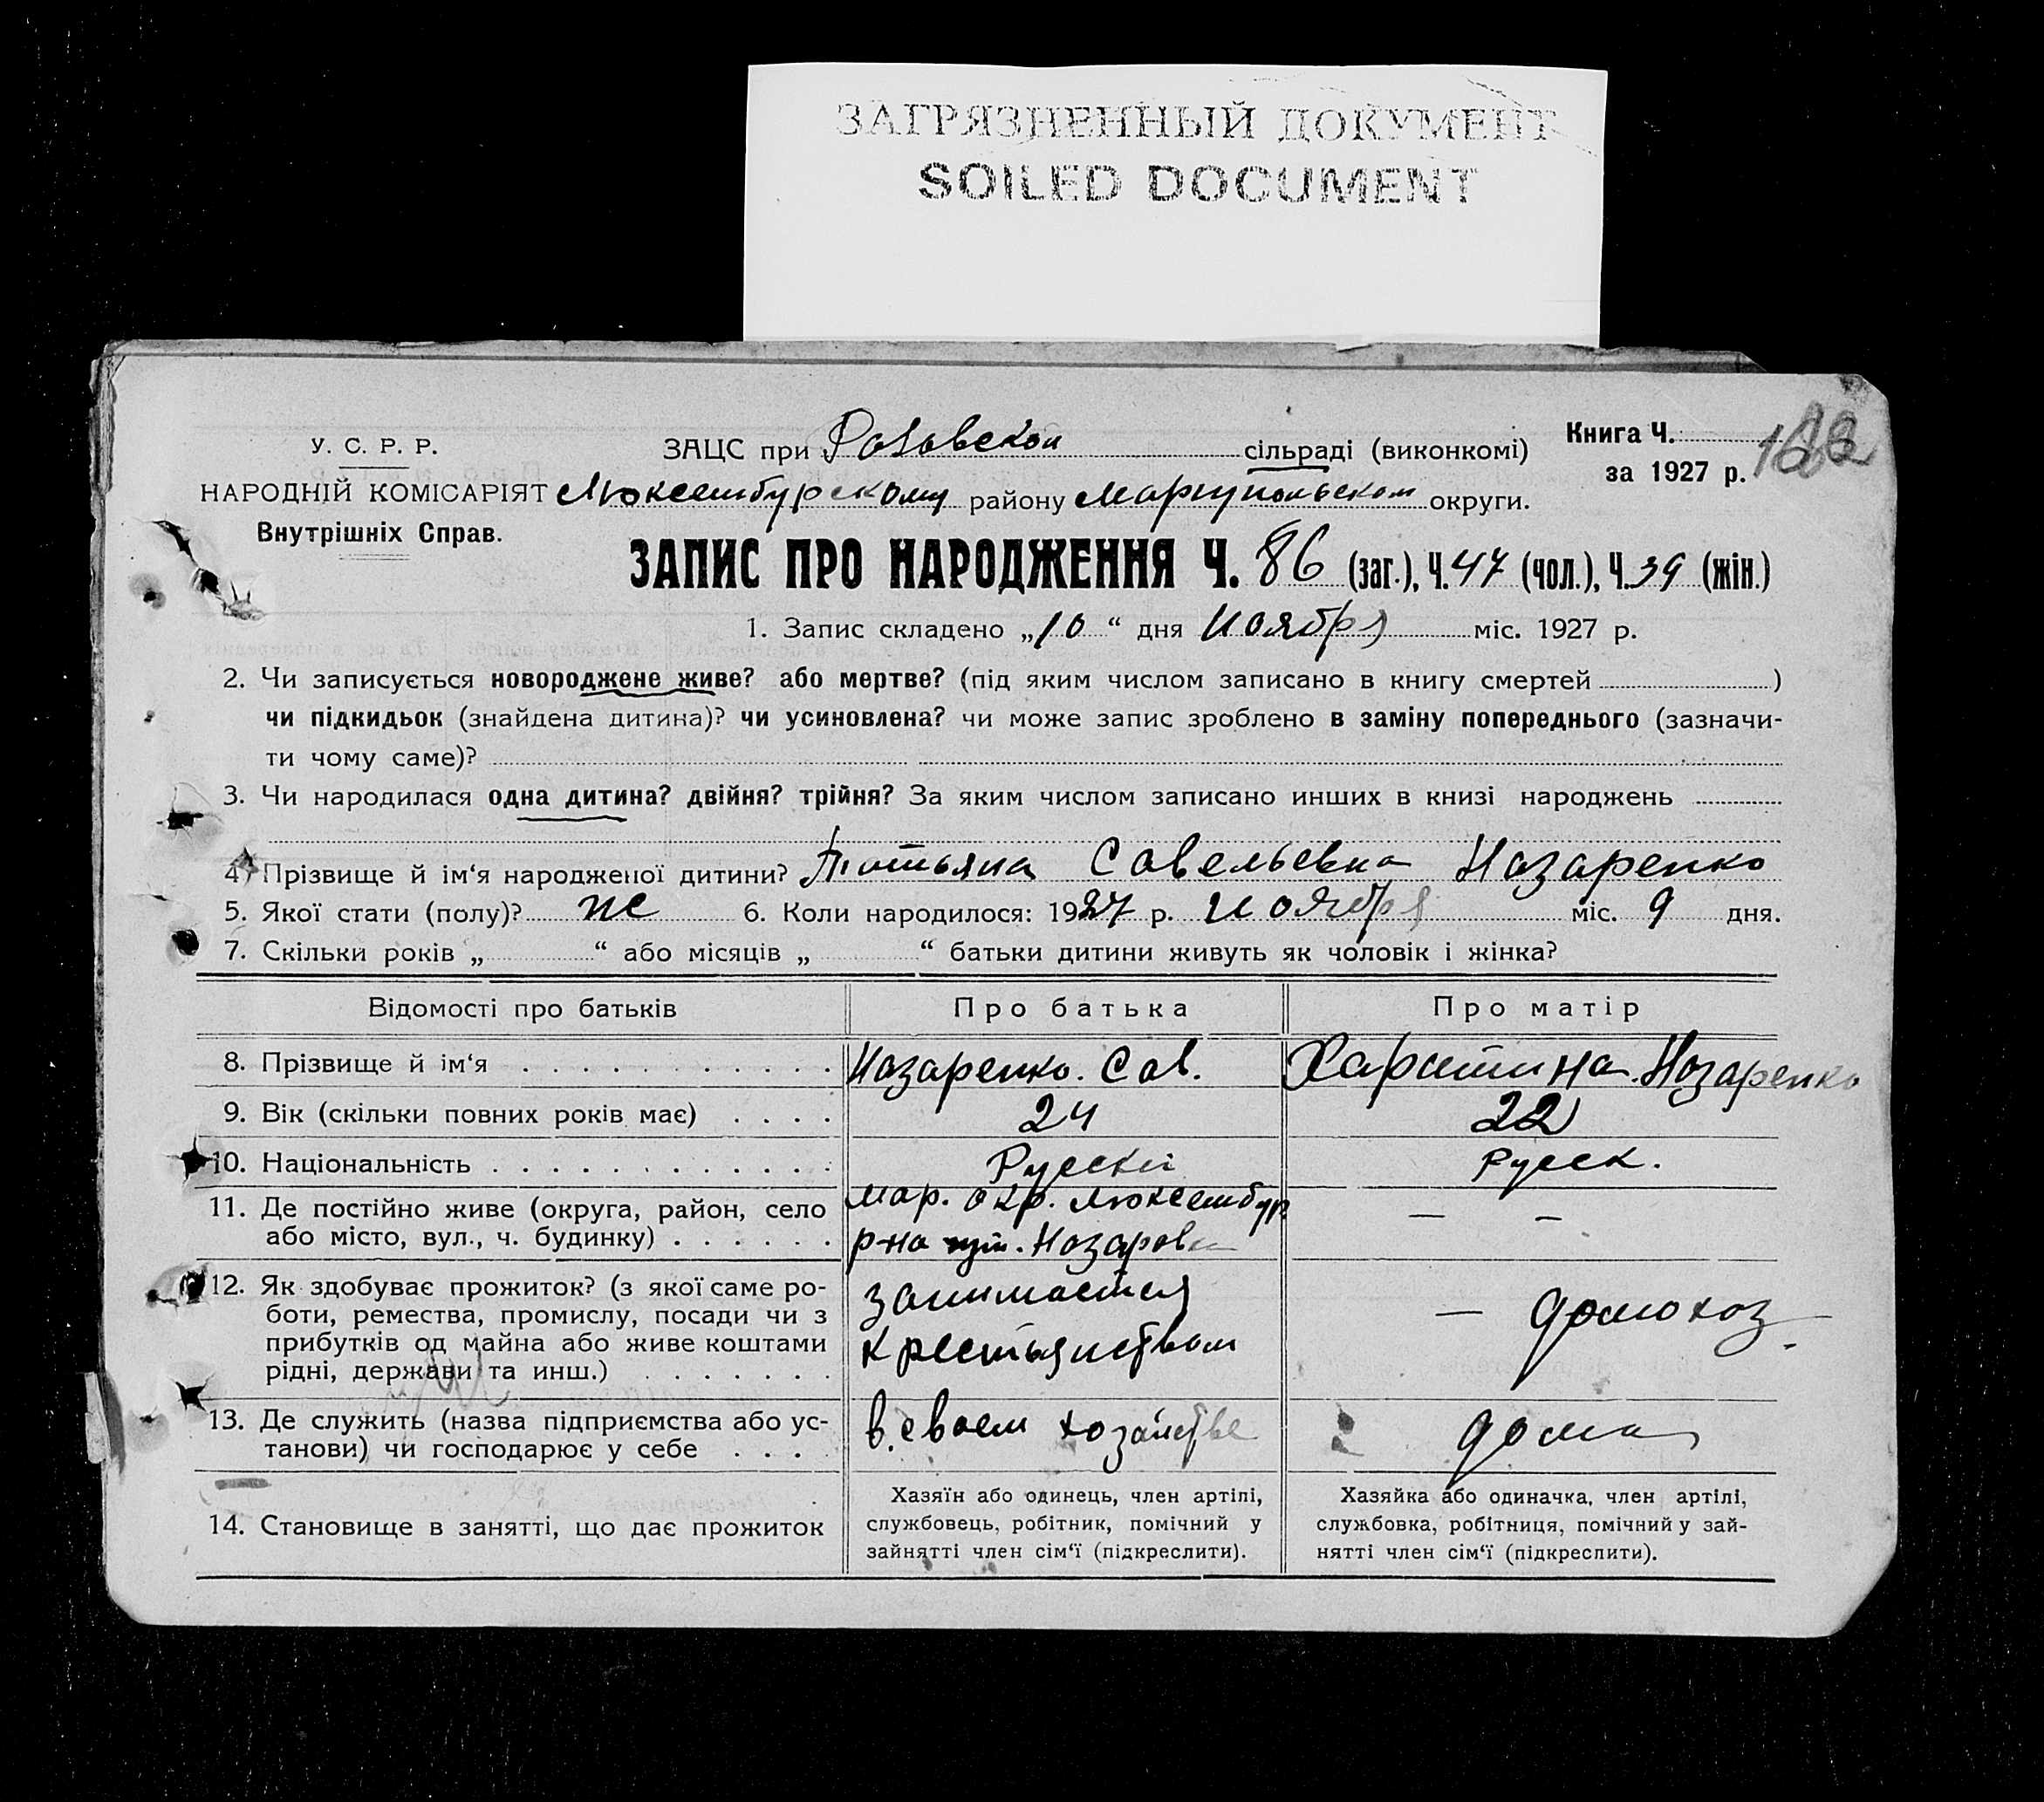 ЗАГРЯЗНЕННЫЙ ДОКУМЕНТ
SOILED DOCUMENT
У. С. Р. Р.
НАРОДНІЙ КОМІСАРІЯТ
Внутрішніх Справ.
ЗАЦС при Розовской сільраді (виконкомі)
Люксембурскому району Мариупольском округи.
Книга Ч.
за 1927 р.
ЗАПИС ПРО НАРОДЖЕННЯ Ч. 86 (заг.), Ч. 47 (чол.), Ч. 39 (жін.)
1. Запис складено „10“ дня Ноября міс. 1927 р.
2. Чи записується новороджене живе? або мертве? (під яким числом записано в книгу смертей )
чи підкидьок (знайдена дитина)? чи усиновлена? чи може запис зроблено в заміну попереднього (зазначи-
ти чому саме)?
3. Чи народилася одна дитина? двійня? трійня? За яким числом записано инших в книзі народжень
4. Прізвище й ім‘я народженої дитини? Татьяна Савельевна Назаренко
5. Якої стати (полу)? ж 6. Коли народилося: 1927 р. Ноября міс. 9 дня.
7. Скільки років „ “ або місяців „ “ батьки дитини живуть як чоловік і жінка?
Відомості про батьків Про батька Про матір
8. Прізвище й ім‘я Назаренко. Сав. Харитина Назаренко
9. Вік (скільки повних років має) 24 22
10. Національність Русский Русск.
11. Де постійно живе (округа, район, село Мар. окр. Люксембур. — —
або місто, вул., ч. будинку) р-на Назаровка
12. Як здобуває прожиток? (з якої саме ро-
боти, ремества, промислу, посади чи з
прибутків од майна або живе коштами
рідні, держави та инш.)
занимается
крестьянством
— домохоз. —
13. Де служить (назва підприємства або ус-
танови) чи господарює у себе
в своем хозайстве
дома
14. Становище в занятті, що дає прожиток
Хазяїн або одинець, член артілі,
службовець, робітник, помічний у
зайнятті член сім‘ї (підкреслити).
Хазяйка або одиначка, член артілі,
службовка, робітниця, помічний у зай-
нятті член сім‘ї (підкреслити).